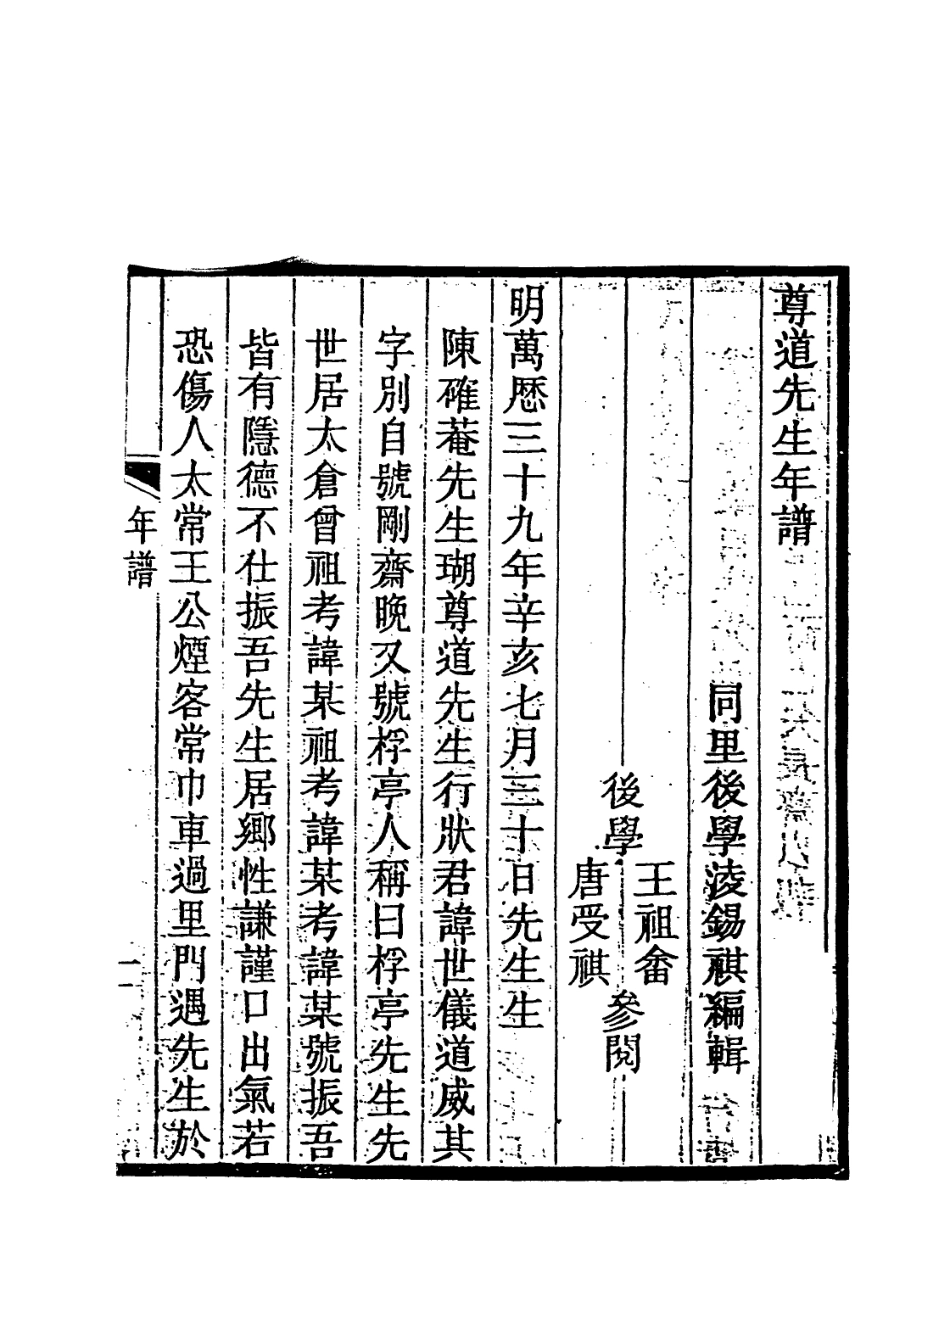 尊道先生年譜
同里後學淩錫祺編輯
後學王祖畬唐受祺參閱
明萬厯三十九年辛亥七月三十日先生生
陳確菴先生瑚尊道先生行狀君諱世儀道威其
字別自號剛齋晚又號桴亭人稱曰桴亭先生先
世居太倉曾祖考諱某祖考諱某考諱某號振吾
皆有隱德不仕振吾先生居鄉性謙謹口出氣若
恐傷人太常王公煙客常巾車過里門遇先生於
年譜
一